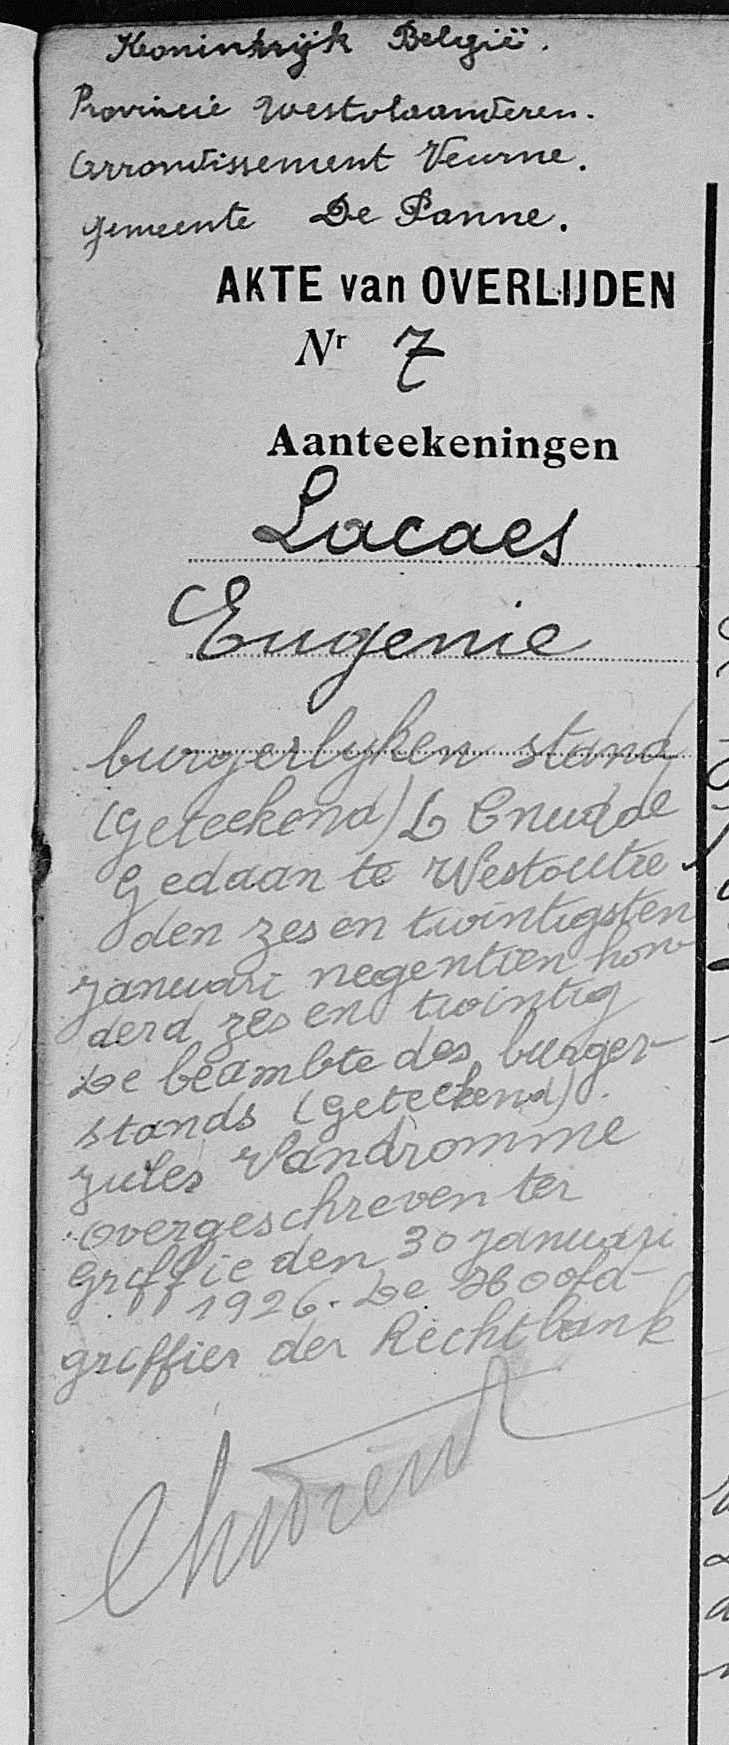 Koninkrijk België.
Provincie Westvlaanderen.
Arrondissement Veurne.
gemeente De Panne.
AKTE van OVERLIJDEN
Nr 7
Aanteekeningen
Lacaes
Eugenie
burgerlyken stand
(Geteekend) L Cnudde
Gedaan te Westoutre
den zes en twintigsten
januari negentien hon-
derd zes en twintig
De beambte des burger-
stands (Geteekend)
Jules Vandromme
overgeschreven ter
Griffie den 30 januari
1926. De Hoofd-
griffier der Rechtbank